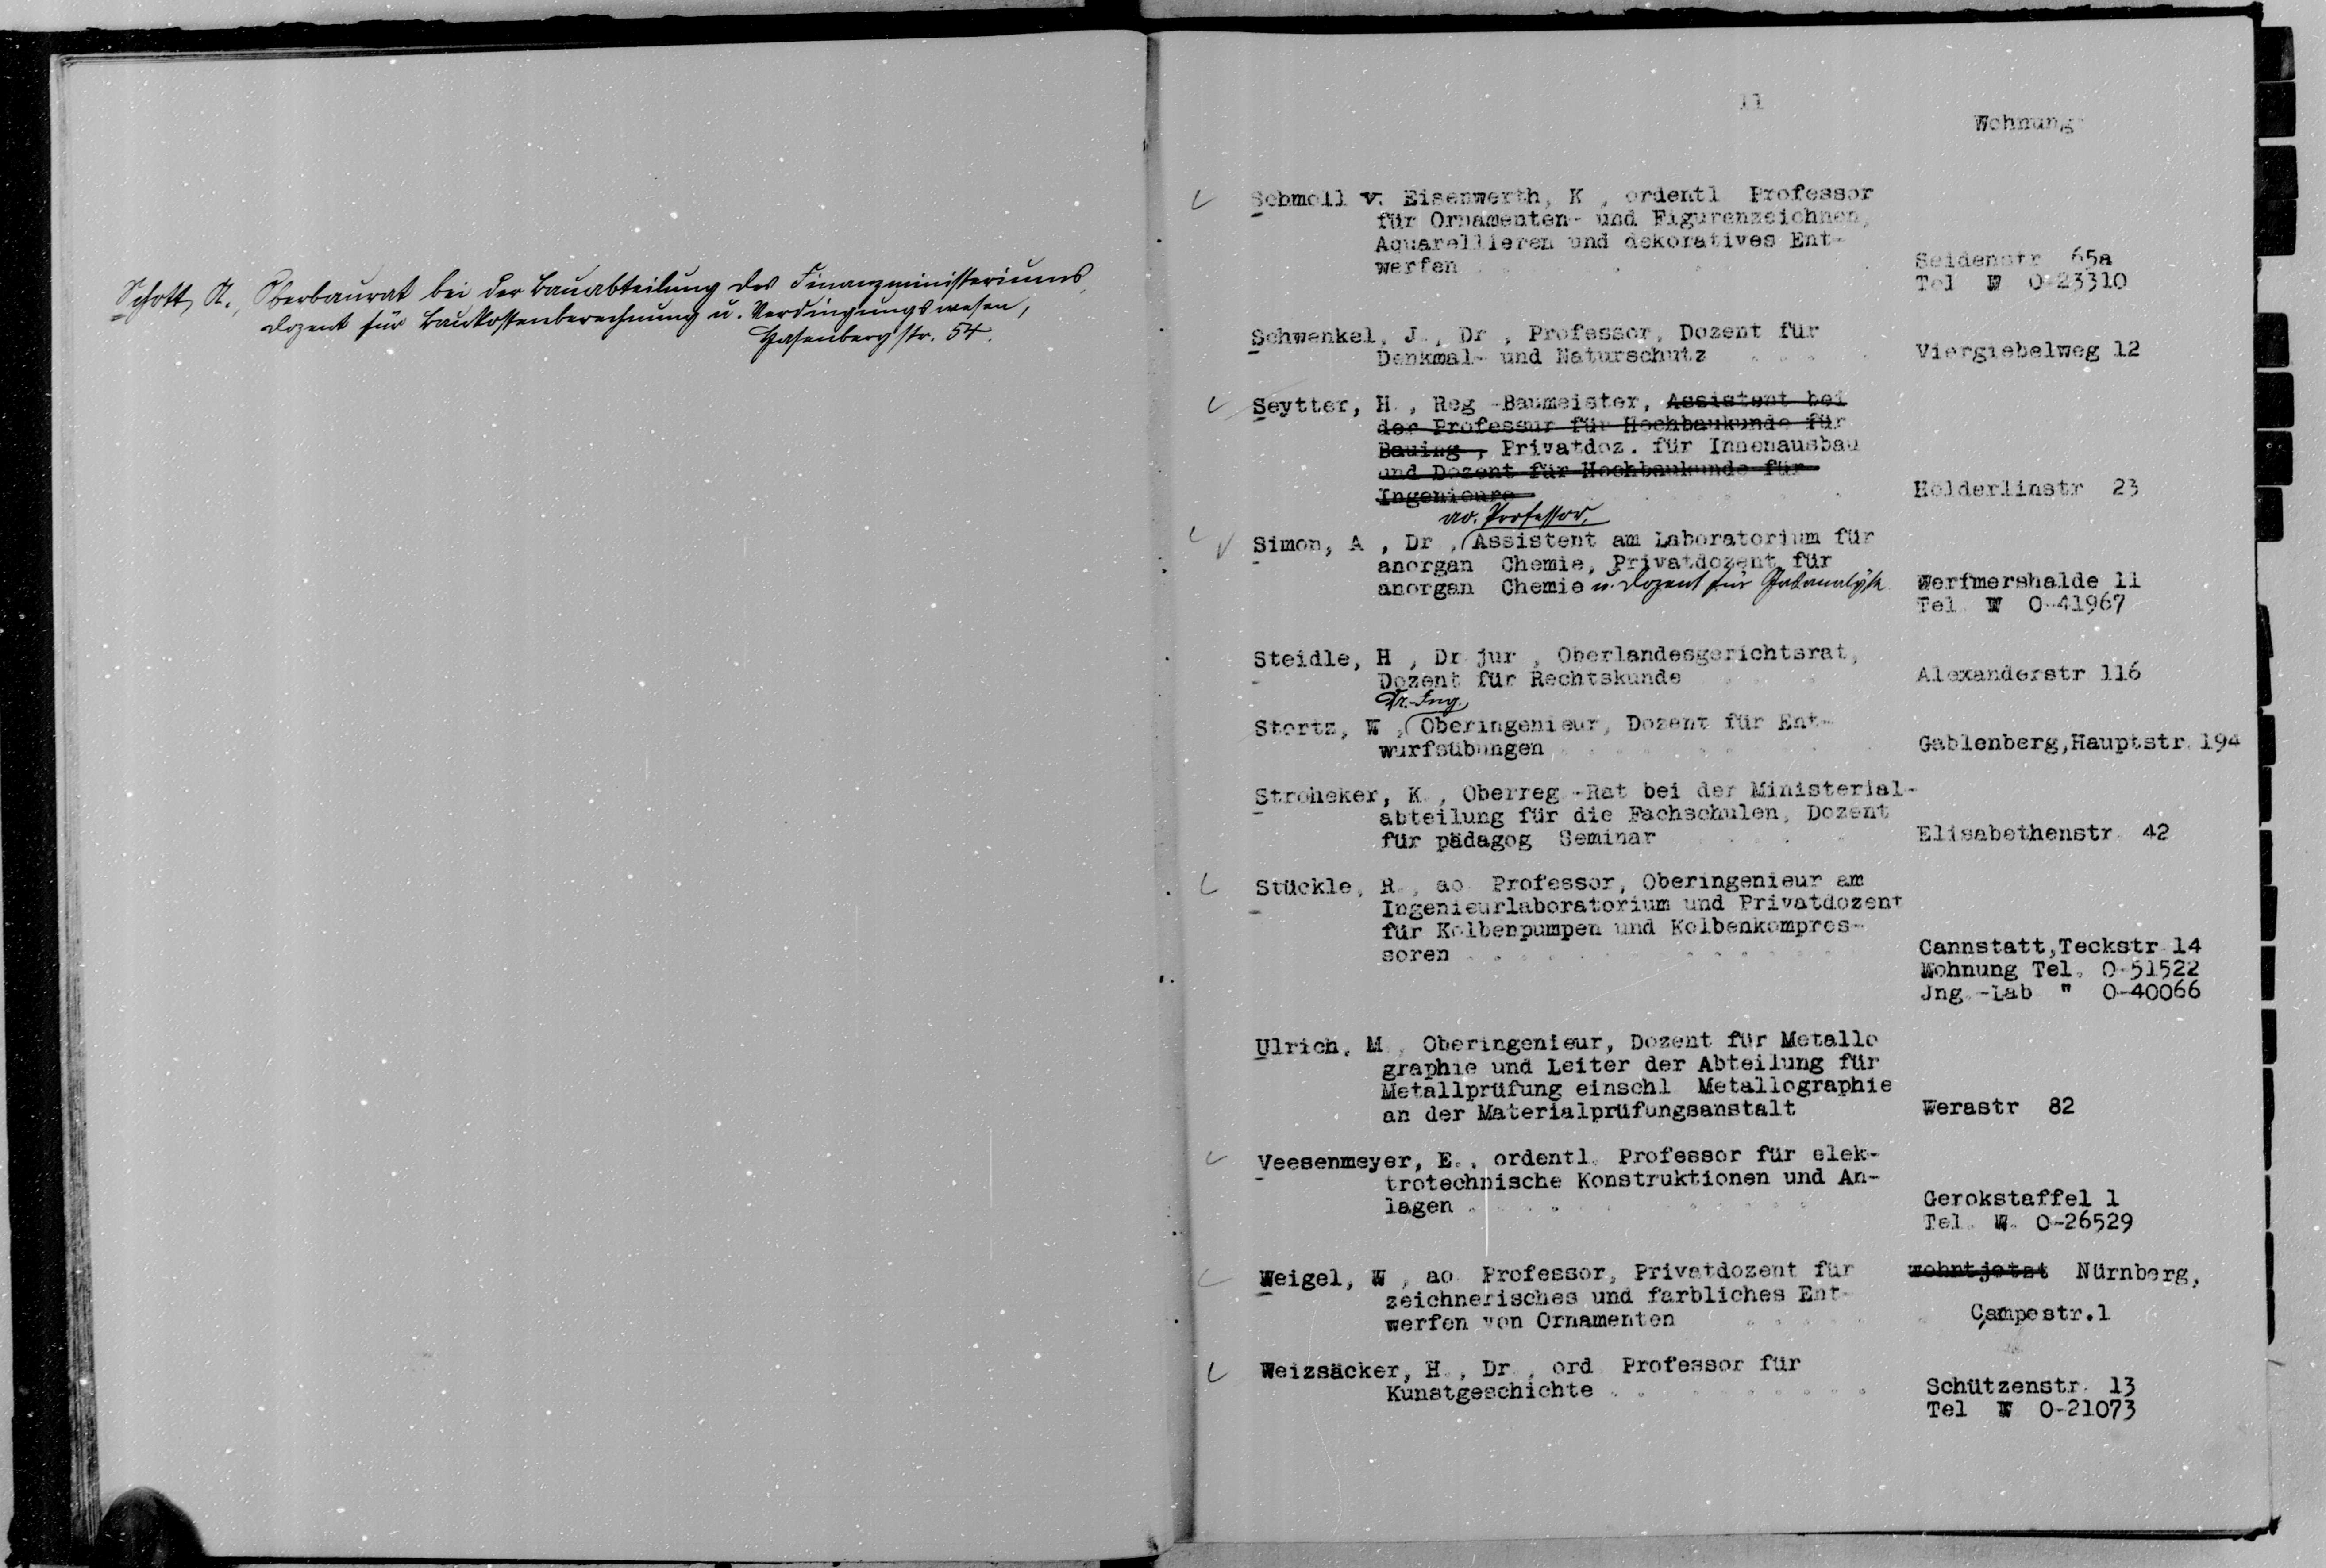 Schott, A., Oberbaurat bei der Bauabteilung des Finanzministeriums,
Dozent für Baukostenberechnung u. Verdingungswesen,
Hasenbergstr. 54.
11
Wohnung
Schmoll v. Eisenwerth, K , ordentl Professor
für Ornamenten- und Figurenzeichnen,
Aquarellieren und dekoratives Ent-
werfen
Seidenstr 65a
Tel W 0-23310
Schwenkel, J., Dr , Professor, Dozent für
Denkmal- und Naturschutz
Viergiebelweg 12
Seytter, H., Reg -Baumeister, Assistent bei
der Professur für Hochbaukunde für
Bauing , Privatdoz. für Innenausbau
und Dozent für Hochbaukunde für
Ingenieure
Holderlinstr 23
ao. Professor,
Simon, A , Dr , Assistent am Laboratorium für
anorgan Chemie, Privatdozent für
anorgan Chemie u. Dozent für Gasanalyse
Werfmershalde 11
Tel W 0-41967
Steidle, H , Dr jur , Oberlandesgerichtsrat,
Dozent für Rechtskunde
Alexanderstr 116
Dr.-Ing.,
Stortz, W , Oberingenieur, Dozent für Ent-
wurfsübungen
Gablenberg,Hauptstr. 194
Stroheker, K., Oberreg.-Rat bei der Ministerial-
abteilung für die Fachschulen, Dozent
für pädagog Seminar
Elisabethenstr. 42
Stückle, R., ao. Professor, Oberingenieur am
Ingenieurlaboratorium und Privatdozent
für Kolbenpumpen und Kolbenkompres-
soren
Cannstatt,Teckstr 14
Wohnung Tel. 0-51522
Jng.-Lab " 0-40066
Ulrich, M , Oberingenieur, Dozent für Metallo
graphie und Leiter der Abteilung für
Metallprüfung einschl Metallographie
an der Materialprüfungsanstalt
Werastr 82
Veesenmeyer, E., ordentl. Professor für elek-
trotechnische Konstruktionen und An-
lagen
Gerokstaffel 1
Tel. W. 0-26529
Weigel, W , ao. Professor, Privatdozent für
zeichnerisches und farbliches Ent-
werfen von Ornamenten
wohnt jetzt Nürnberg,
Campestr.1
Weizsäcker, H., Dr., ord Professor für
Kunstgeschichte
Schützenstr. 13
Tel W 0-21073